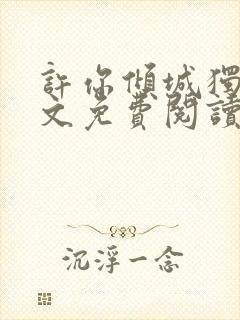 許你傾城獨
文免費閱讀
沉浮一念